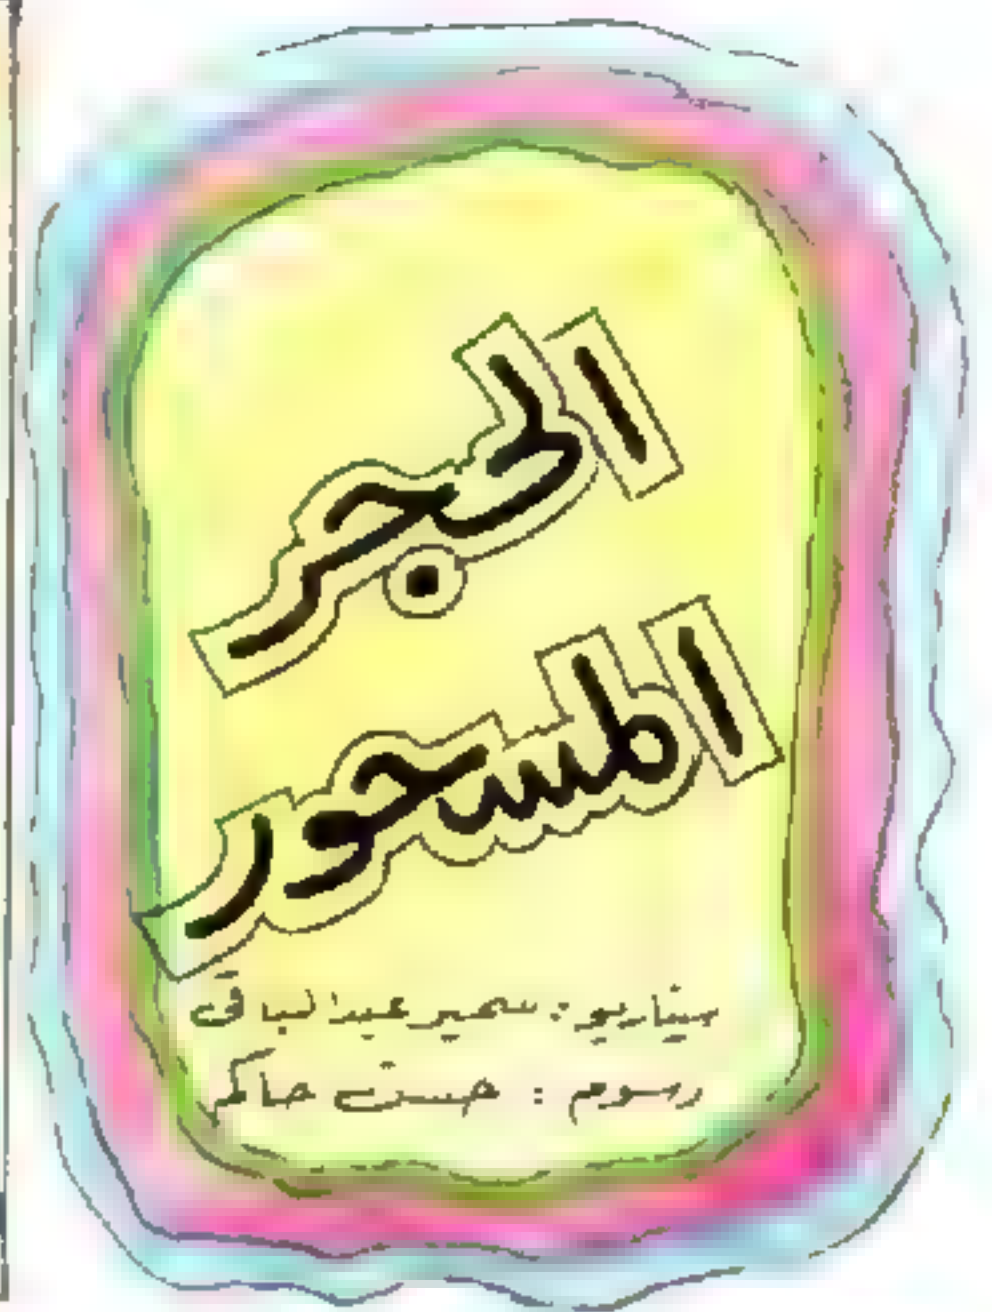 الحجر
المسحور
سيناريو : سمير عبد الباقى
رسوم : حسن حاكم